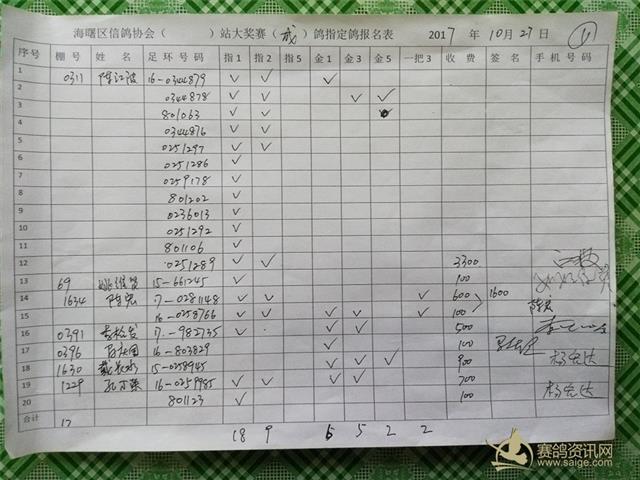 海曙区信鸽协会（ ）站大奖赛（成）鸽指定鸽报名表 2017 年 10 月 27 日 ①
序号 棚号 姓名 足环号码 指1 指2 指5 金1 金3 金5 一把3 收费 签名 手机号码
1 0311 陈江波 16-0344879 ✓ ✓ ✓
2 0344878 ✓ ✓ ✓ ✓
3 801063 ✓ ✓
4 0344876 ✓ ✓
5 0251297 ✓ ✓
6 0251286 ✓
7 0259178 ✓
8 801202 ✓
9 0236013 ✓
10 0251292 ✓
11 801106 ✓
12 0251289 ✓ ✓ 3300
13 69 15-661245 ✓ 100
14 1634 陈宏 17-0281148 ✓ ✓ ✓ 600 1600
15 16-0258766 ✓ ✓ ✓ ✓ ✓ 100
16 0391 17-982735 ✓ ✓ ✓ 500
17 0396 16-803829 ✓ 100
18 1630 15-0258945 ✓ ✓ ✓ 900 杨宏达
19 1229 16-0259985 ✓ ✓ ✓ ✓ 700
20 801123 ✓ 100 杨宏达
合计 12
18 9 6 5 2 2
赛鸽资讯网
www.saige.com